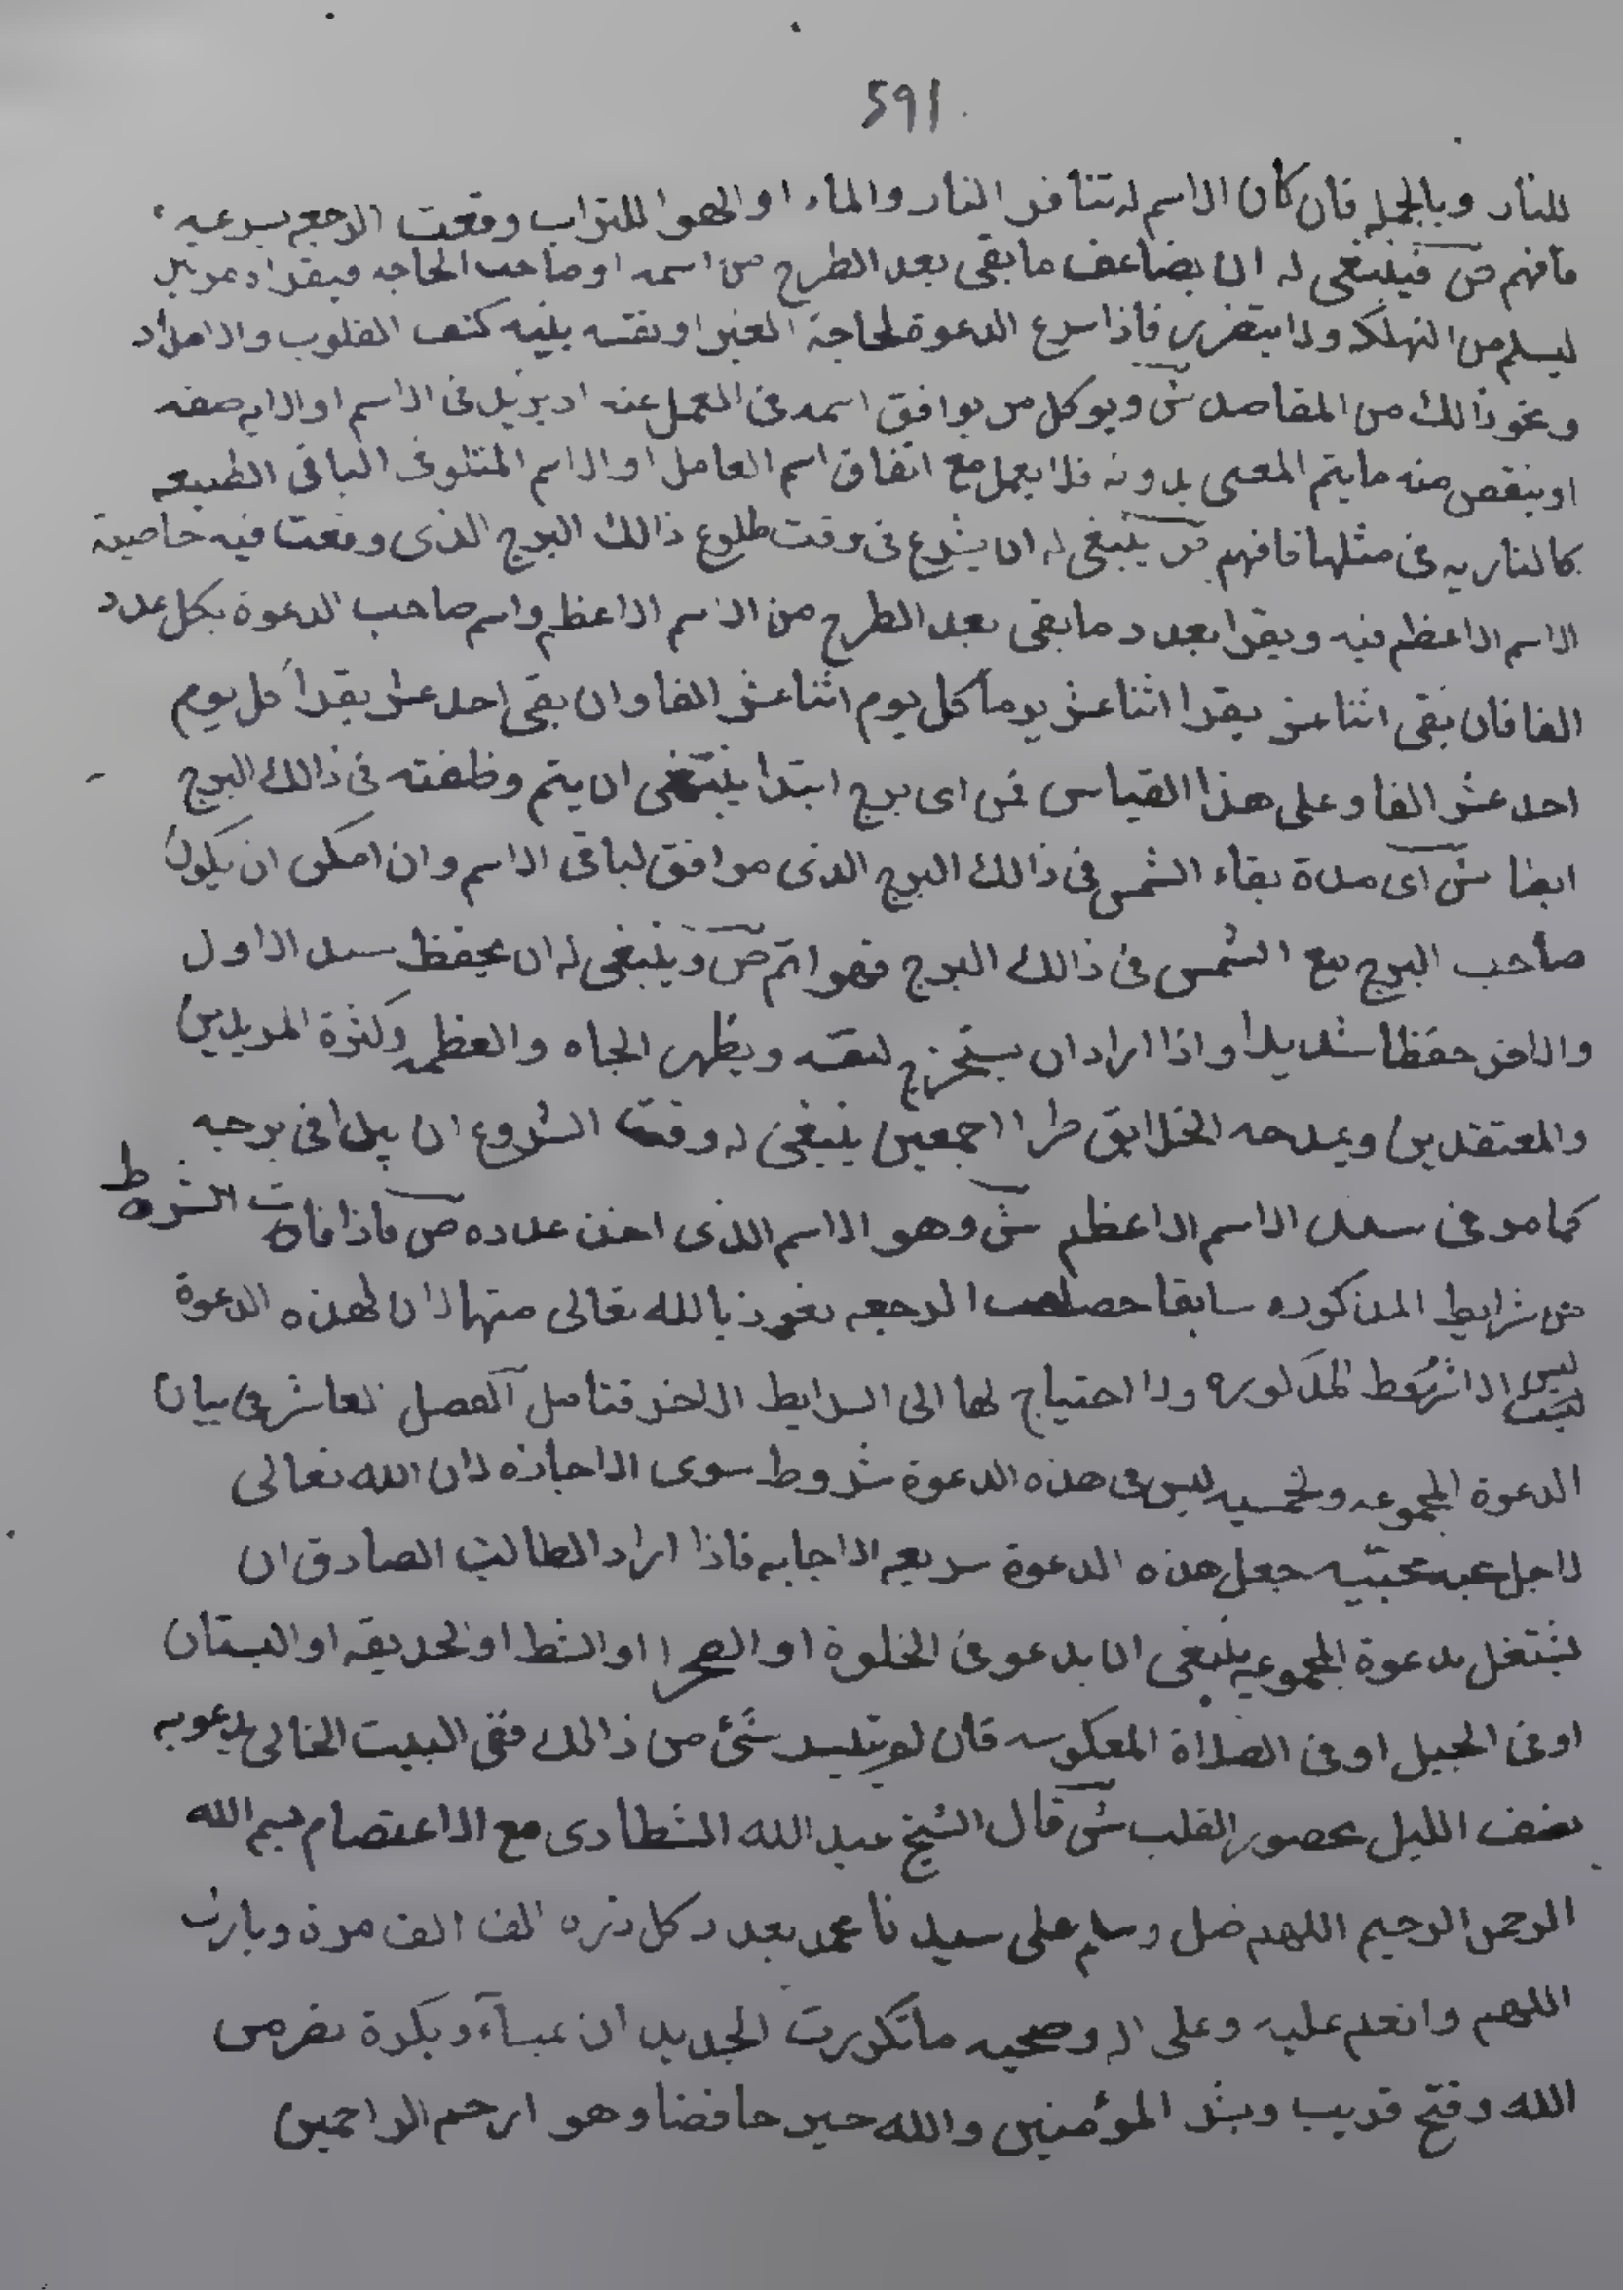 591
للنار وبالجمله فان كان الاسم له تنافر النار والماء او الهوا للتراب وقعت الرجعه بسرعيه
فافهم ص فينبغى له ان يضاعف ما بقى بعد الطرح من اسمه او صاحب الحاجه فيقراء
ليسلم من التهلكه ولا يتضرر فاذا شرع الدعوة لحاجة الغير او نفسه بنيه كشف القلوب والامداد
ونحو ذالك من المقاصد ش ويوكل من يوافق اسمه فى العمل عنه او يزيل فى الاسم او الايه صفه
او ينقص منه ما يتم المعنى بدونه فلا يعمل مع اتفاق اسم العامل او الاسم المتلوفى الباقى الطبيعه
كالناريه فى مثلها فافهم ص ينبغى له ان يشرع فى وقت طلوع ذالك البرج الذى وقعت فيه خاصية
الاسم الاعظم فيه ويقرا بعدد ما بقى بعد الطرح من الاسم الاعظم واسم صاحب الدعوة بكل عدد
الفا فان بقى اثنا عشر يقرا اثنا عشر يوما كل يوم اثنا عشر الفا وان بقى احد عشر يقرأ كل يوم
احد عشر الفا وعلى هذا القياس فمن اى برج ابتدا ينبغى ان يتم وظفته فى ذالك البرج
ايضا ش اى مدة بقاء الشمس فى ذالك البرج الذى موافق لباقى الاسم وان امكن ان يكون
صاحب البرج مع الشمس فى ذالك البرج فهو اتم ص وينبغى له ان يحفظ سند الاول
والاخر حفظا شديدا واذا اراد ان يستخرج لنفسه ويظهر الجاه والعظمه وكثرة المريدين
والمعتقدين ويمدحه الخلايق طرا اجمعين ينبغى له وقت الشروع ان يبدا فى برجه
كما مر فى سند الاسم الاعظم ش وهو الاسم الذى اخذ عدده ص فاذا فات الشرط
من شرايط المذكوره سابقا حصلت الرجعه نعوذ بالله تعالى منها لان لهذه الدعوة
ليس الا شرط المذكوره ولا احتياج لها الى الشرايط الاخر فتامل الفصل العاشر فى بيان
الدعوة المجموعه وخمسيه ليس فى هذه الدعوة شروط سوى الاجازه لان الله تعالى
لاجل محبتيه جعل هذه الدعوة سريعه الاجابه فاذا اراد الطالب الصادق ان
يشتغل بدعوة المجموعيه ينبغى ان يدعو فى الخلوة او الصحرا او الشط او الحديقه او البستان
او فى الجبل او فى الصلاة المعكوسه فان لم يتيسر شئ من ذالك ففى البيت الخالى يدعو به
نصف الليل بحضور القلب ش قال الشيخ عبد الله الشطارى مع الاعتصام بسم الله
الرحمن الرحيم اللهم صل وسلم على سيدنا محمد بعدد كل ذره الف الف مرة وبارك
اللهم وانعم عليه وعلى اله وصحبه ما تكررت الجديدان عساء وبكرة نصر من
الله وفتح قريب وبشر المؤمنين والله خير حافضا وهو ارحم الراحمين